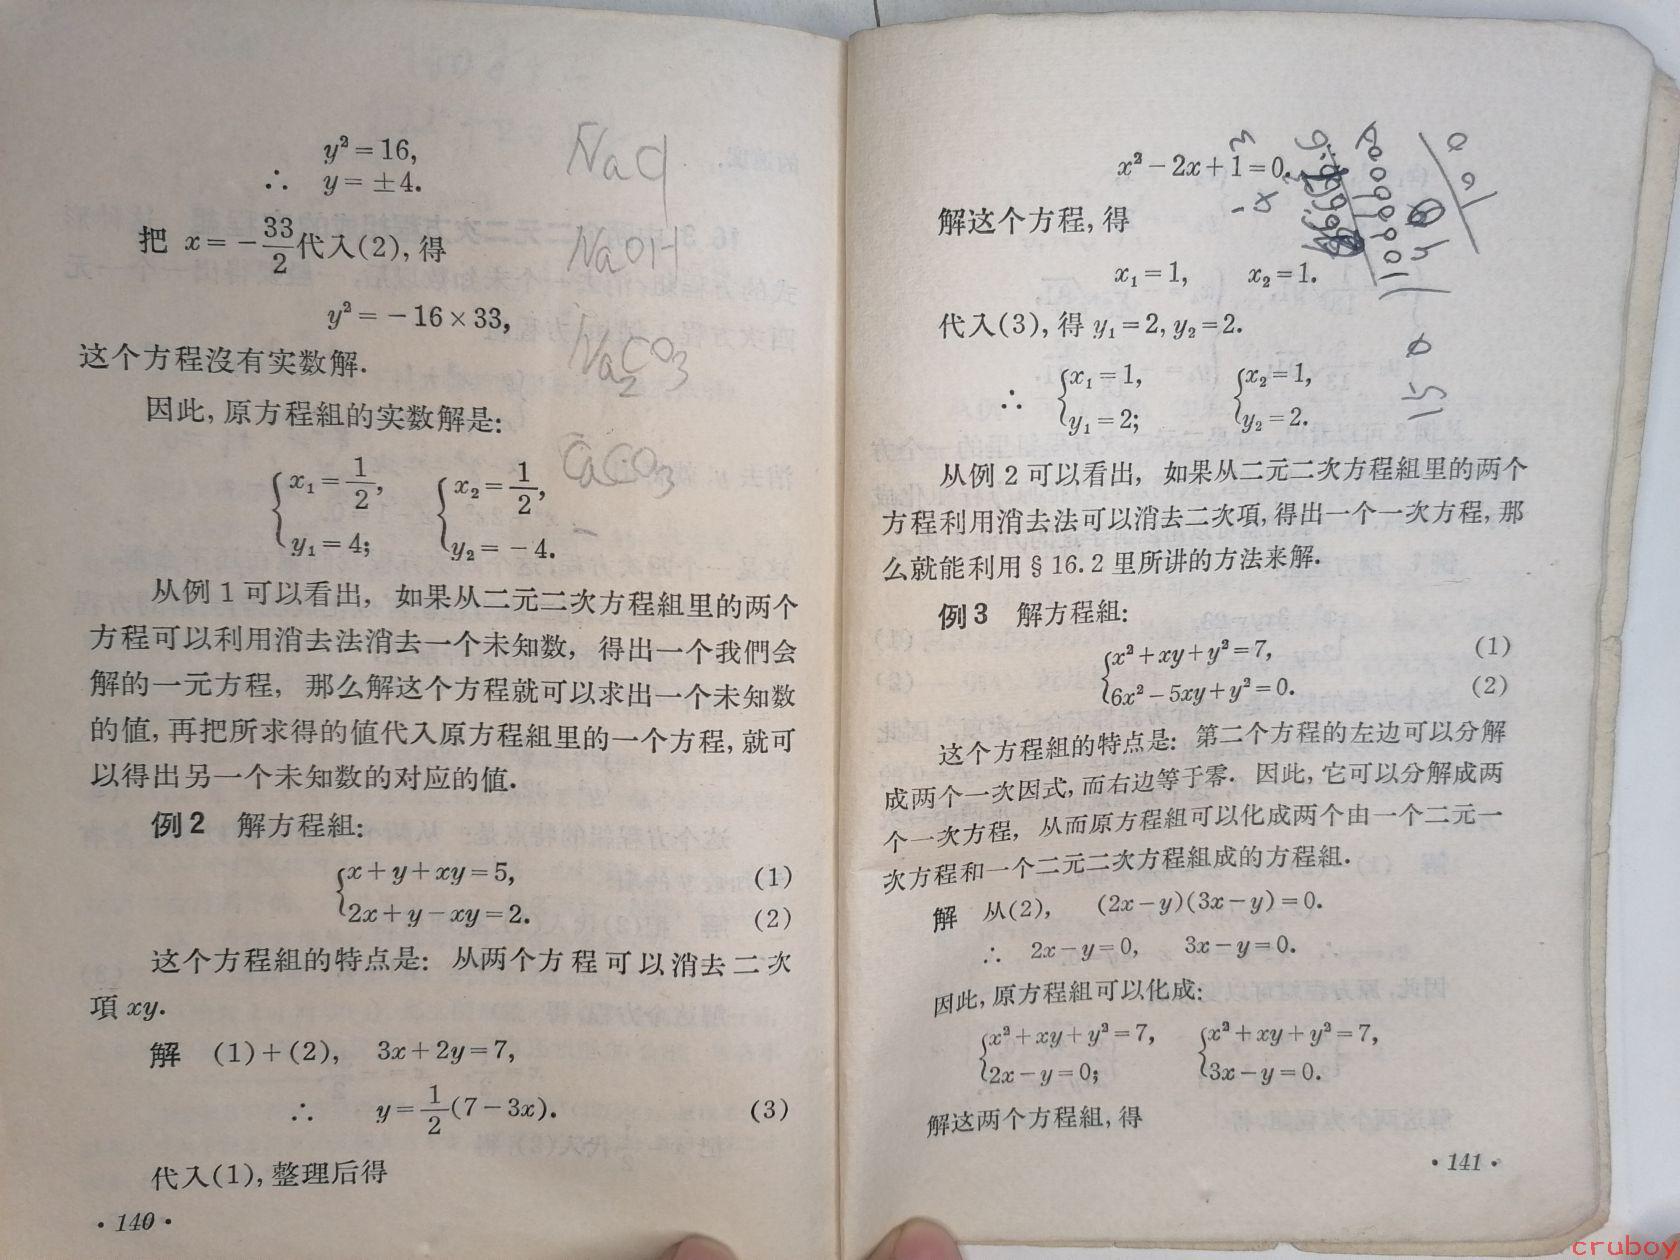 y² = 16,
∴ y = ±4.
把 x = -33/2 代入(2), 得
y² = -16×33,
这个方程沒有实数解.
因此, 原方程組的实数解是:
{x₁ = 1/2, {x₂ = 1/2,
y₁ = 4; y₂ = -4.
从例 1 可以看出, 如果从二元二次方程組里的两个
方程可以利用消去法消去一个未知数, 得出一个我們会
解的一元方程, 那么解这个方程就可以求出一个未知数
的值, 再把所求得的值代入原方程組里的一个方程, 就可
以得出另一个未知数的对应的值.
例 2 解方程組:
{x + y + xy = 5, (1)
2x + y - xy = 2. (2)
这个方程組的特点是: 从两个方程可以消去二次
項 xy.
解 (1)+(2), 3x + 2y = 7,
∴ y = 1/2(7 - 3x). (3)
代入(1), 整理后得
·140·
NaCl
NaOH
Na₂CO₃
CaCO₃
x² - 2x + 1 = 0.
解这个方程, 得
x₁ = 1, x₂ = 1.
代入(3), 得 y₁ = 2, y₂ = 2.
∴ {x₁ = 1, {x₂ = 1,
y₁ = 2; y₂ = 2.
从例 2 可以看出, 如果从二元二次方程組里的两个
方程利用消去法可以消去二次項, 得出一个一次方程, 那
么就能利用 § 16.2 里所讲的方法来解.
例 3 解方程組:
{x² + xy + y² = 7, (1)
6x² - 5xy + y² = 0. (2)
这个方程組的特点是: 第二个方程的左边可以分解
成两个一次因式, 而右边等于零. 因此, 它可以分解成两
个一次方程, 从而原方程組可以化成两个由一个二元一
次方程和一个二元二次方程組成的方程組.
解 从(2), (2x - y)(3x - y) = 0.
∴ 2x - y = 0, 3x - y = 0.
因此, 原方程組可以化成:
{x² + xy + y² = 7, {x² + xy + y² = 7,
2x - y = 0; 3x - y = 0.
解这两个方程組, 得
·141·
cruboy